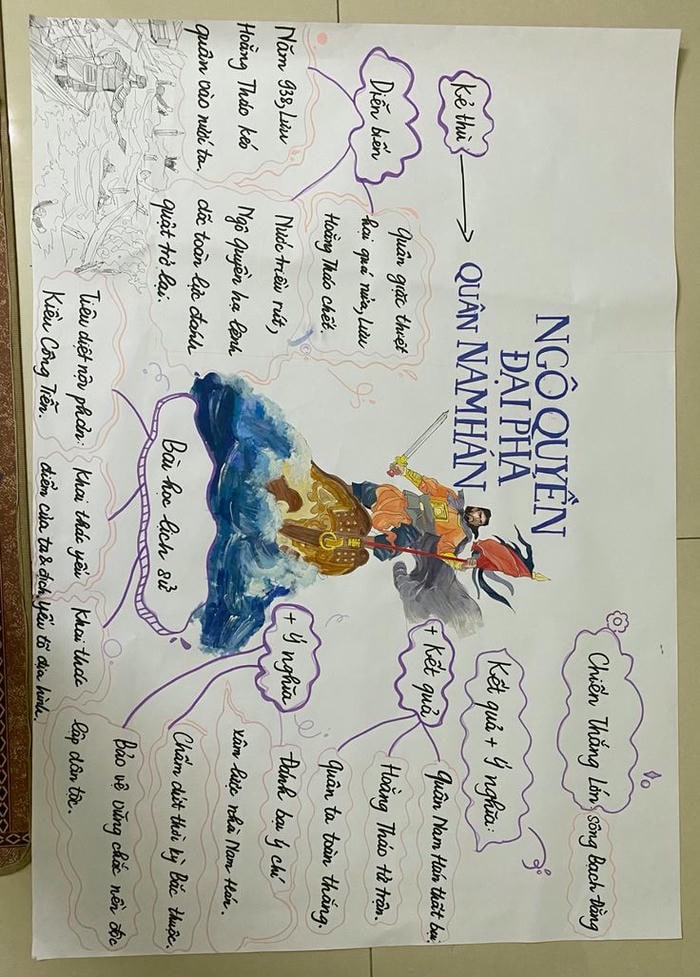 NGÔ QUYỀN
ĐẠI PHÁ
QUÂN NAM HÁN
Kẻ thù
Diễn biến
Năm 938, Lưu
Hoằng Tháo kéo
quân vào nước ta.
Nước triều rút,
Ngô Quyền hạ lệnh
dốc toàn lực đánh
quật trở lại.
Quân giặc thiệt
hại quá nửa, Lưu
Hoằng Tháo chết
Bài học lịch sử
Tiêu diệt nội phản:
Kiều Công Tiễn.
Khai thác yếu
điểm của ta & địch
Khai thác
yếu tố địa hình.
Chiến Thắng Lớn sông Bạch Đằng
Kết quả + Ý nghĩa:
+ Kết quả
Quân Nam Hán thất bại
Hoằng Tháo tử trận.
Quân ta toàn thắng.
+ Ý nghĩa
Đánh bại ý chí
xâm lược nhà Nam Hán.
Chấm dứt thời kỳ Bắc thuộc.
Bảo vệ vững chắc nền độc
lập dân tộc.